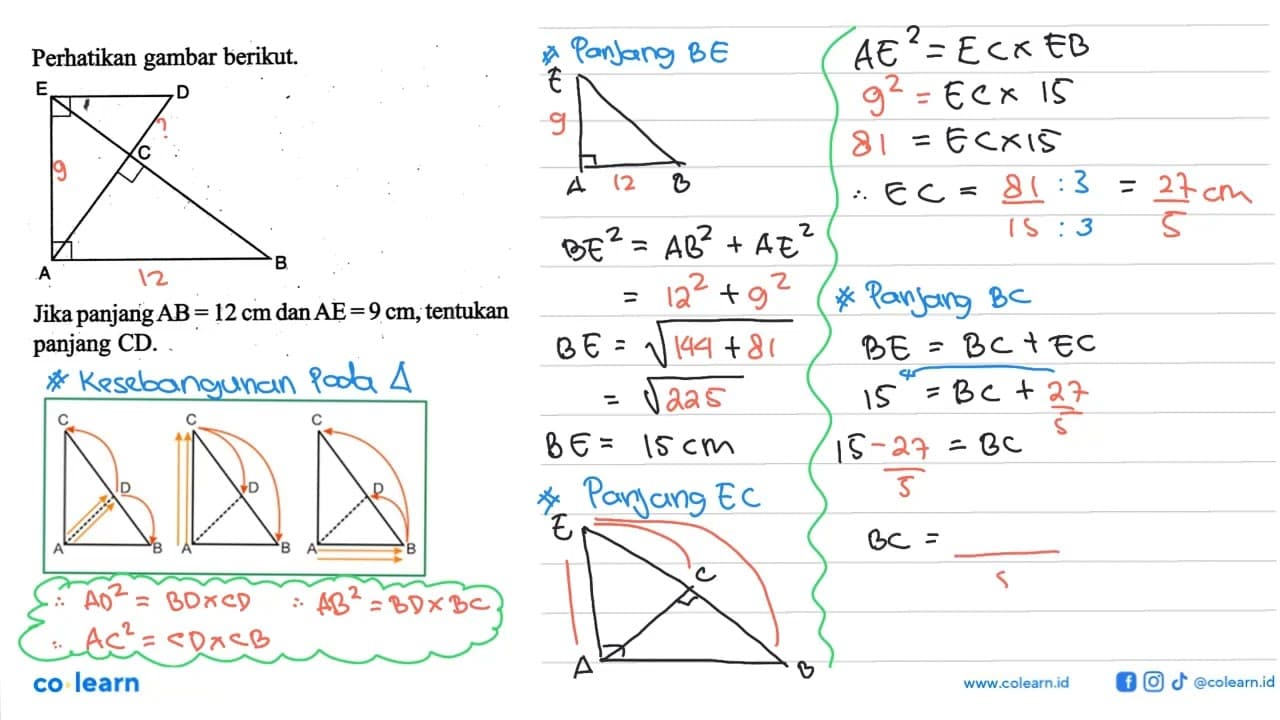 Perhatikan gambar berikut.
E
D
?
C
9
A
12
B
Jika panjang AB = 12 cm dan AE = 9 cm, tentukan
panjang CD.
* Kesebangunan Pada Δ
C C C
D D D
A B A B A B
∴ AD² = BD x CD ∴ AB² = BD x BC
∴ AC² = CD x CB
co learn
* Panjang BE
E
9
A 12 B
BE² = AB² + AE²
= 12² + 9²
BE = √144 + 81
= √225
BE = 15 cm
* Panjang EC
E
C
A B
AE² = EC x EB
9² = EC x 15
81 = EC x 15
∴ EC = 81 : 3 / 15 : 3 = 27/5 cm
* Panjang BC
BE = BC + EC
15 = BC + 27/5
15 - 27/5 = BC
BC = __/5
www.colearn.id @colearn.id